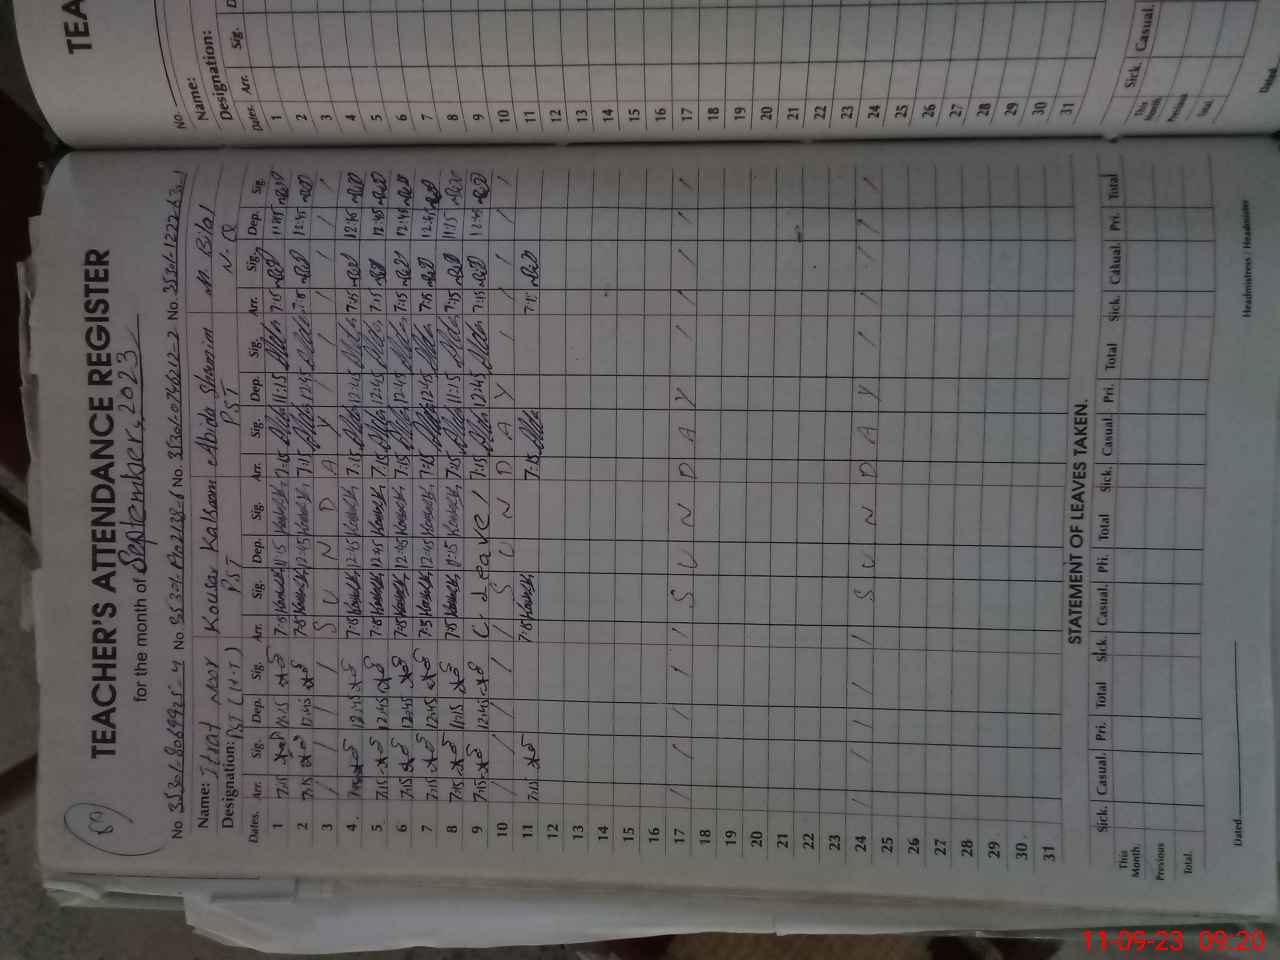 TEACHER'S ATTENDANCE REGISTER
for the month of September, 2023
Name: Itrat Noor Kousar Kalsoom Abida Shamim M. Bilal
Designation: PST (H.T) PST PST N.Q
Dates. Arr. Sig. Dep. Sig. Arr. Sig. Dep. Sig. Arr. Sig. Dep. Sig. Arr. Sig. Dep. Sig.
1 7:15 11:15 7:15 11:15 7:15 11:15 7:15 11:15
2 7:15 12:45 7:15 12:45 7:15 12:45 7:15 12:45
3 / / / / S U N D A Y / / / / /
4 7:15 12:45 7:15 12:45 7:15 12:45 7:15 12:45
5 7:15 12:45 7:15 12:45 7:15 12:45 7:15 12:45
6 7:15 12:45 7:15 12:45 7:15 12:45 7:15 12:45
7 7:15 12:45 7:15 12:45 7:15 12:45 7:15 12:45
8 7:15 11:15 7:15 11:15 7:15 11:15 7:15 11:15
9 7:15 12:45 C. Leave / 7:15 12:45 7:15 12:45
10 / / / / / S U N D A Y / / / / /
11 7:15 7:15 7:15 7:15
12
13
14
15
16
17 / / / / / S U N D A Y / / / / /
18
19
20
21
22
23
24 / / / / / S U N D A Y / / / / /
25
26
27
28
29
30
31
STATEMENT OF LEAVES TAKEN.
Sick. Casual. Pri. Total Sick. Casual. Pri. Total Sick. Casual. Pri. Total Sick. Casual. Pri. Total
This Month.
Previous
Total.
Dated
Headmistress / Headmister
TEA
No.
Name:
Designation:
Dates. Arr. Sig. D
1
2
3
4
5
6
7
8
9
10
11
12
13
14
15
16
17
18
19
20
21
22
23
24
25
26
27
28
29
30
31
Sick. Casual.
This Month
Previous
Total.
Dated
11-09-23 09:20